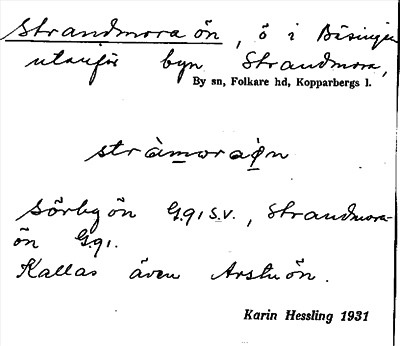 Strandmora ön, ö i Bäsingen
utanför byn Strandmora,
By sn, Folkare hd, Kopparbergs l.
stràmoraø̀n
Sörbyön G.91 s.v., Strandmora-
ön G.91.
Kallas även
Karin Hessling 1931